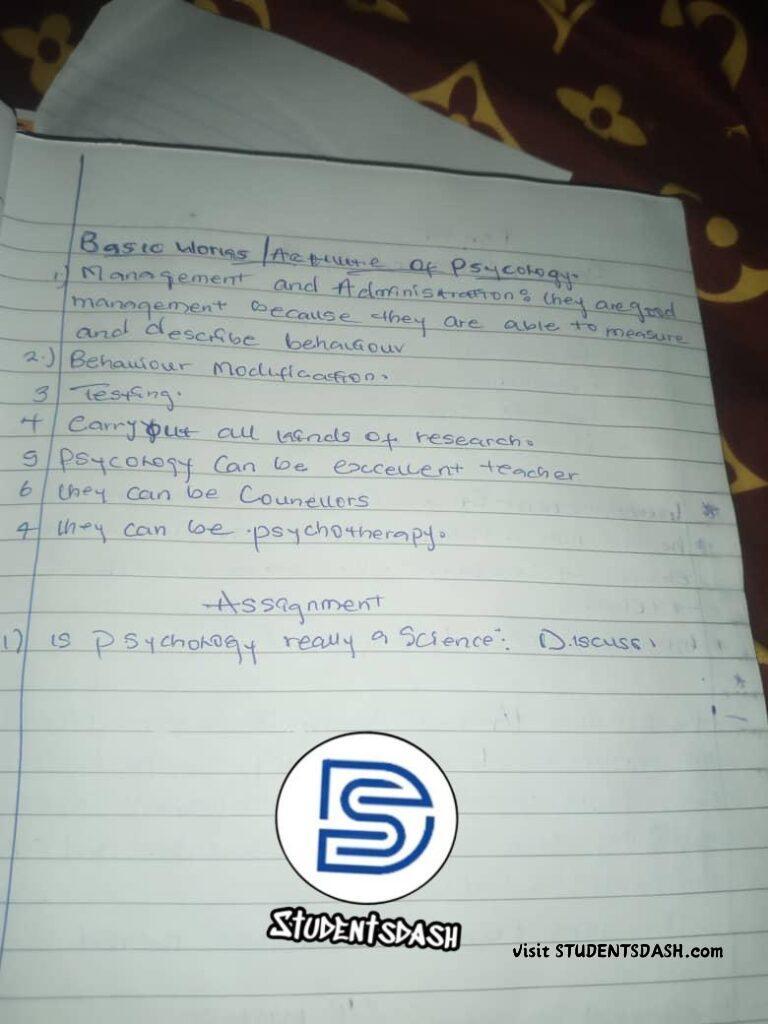 Basic Works / Activite of Psycology.
1) Management and Administration: they are good
management because they are able to measure
and describe behaviour
2.) Behaviour Modification.
3 Testing.
4 Carry out all kinds of research.
5 Psycology can be excellent teacher
6 they can be Counellors
7 they can be psychotherapy.
Assagnment
1) is Psychology really a Science: Discuss.
DS
STUDENTSDASH
Visit STUDENTSDASH.com